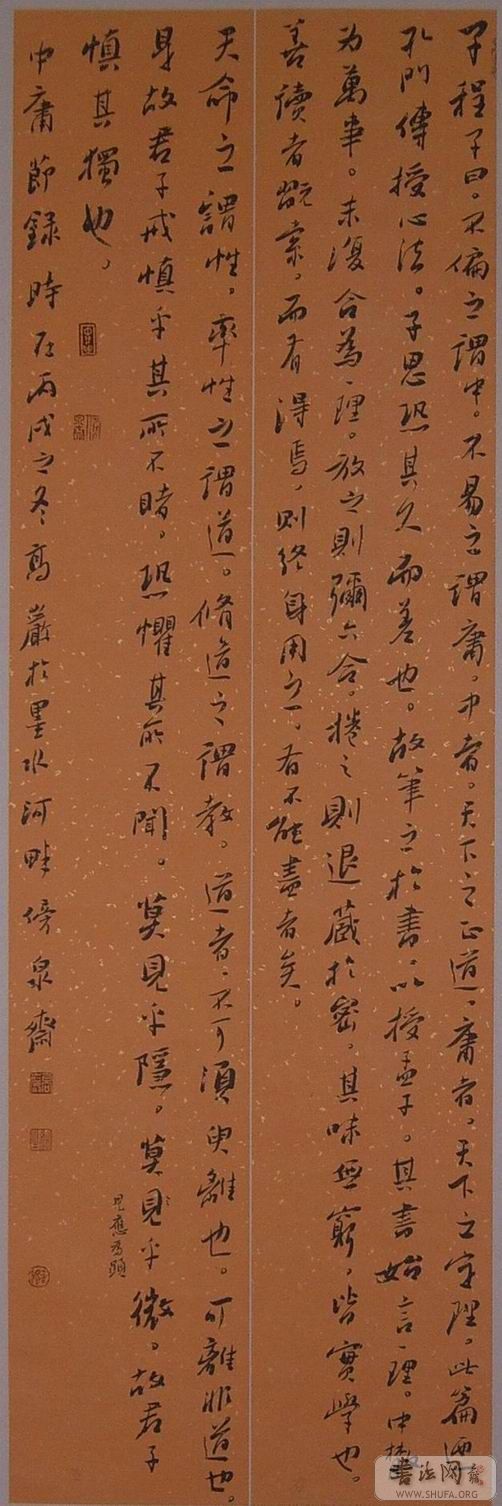 子程子曰。不偏之謂中。不易之謂庸。中者。天下之正道。庸者。天下之定理。此篇迺
孔門傳授心法。子思恐其久而差也。故筆之於書。以授孟子。其書始言一理。中散
為萬事。末復合為一理。放之則彌六合。捲之則退藏於密。其味無窮。皆實學也。
善讀者玩索。而有得焉。則終身用之。有不能盡者矣。
天命之謂性。率性之謂道。脩道之謂教。道者。不可須臾離也。可離非道也。
是故君子戒慎乎其所不睹。恐懼其所不聞。莫見乎隱。莫見乎微。故君子
慎其獨也。
見應為顯
中庸節錄時在丙戌之冬高嚴於墨水河畔傍泉齋
书法网
WWW.SHUFA.ORG